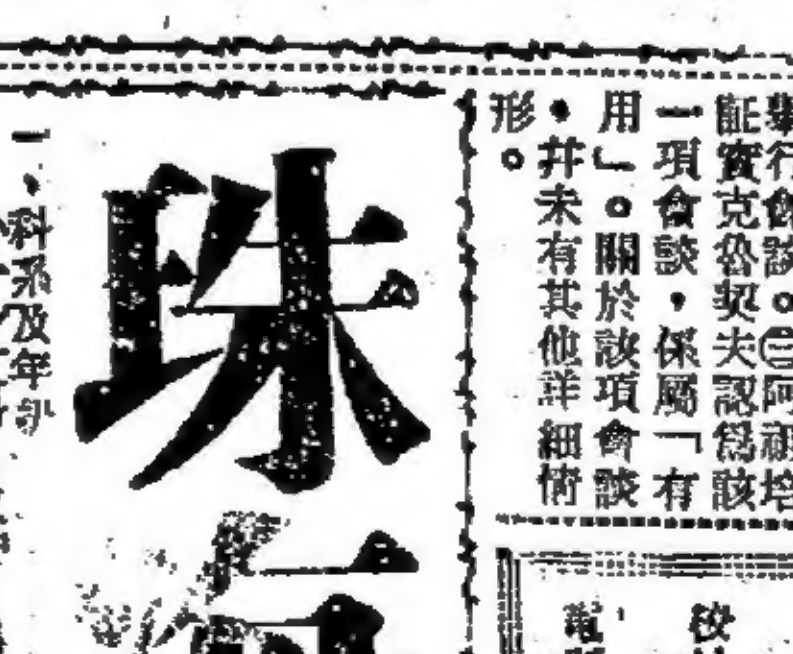 舉行會談。㊂阿祖培
証實克魯契夫認爲該
一項會談,係屬「有
用」。關於該項會談
,幷未有其他詳細情
形。
珠
一、科系及年
電
校